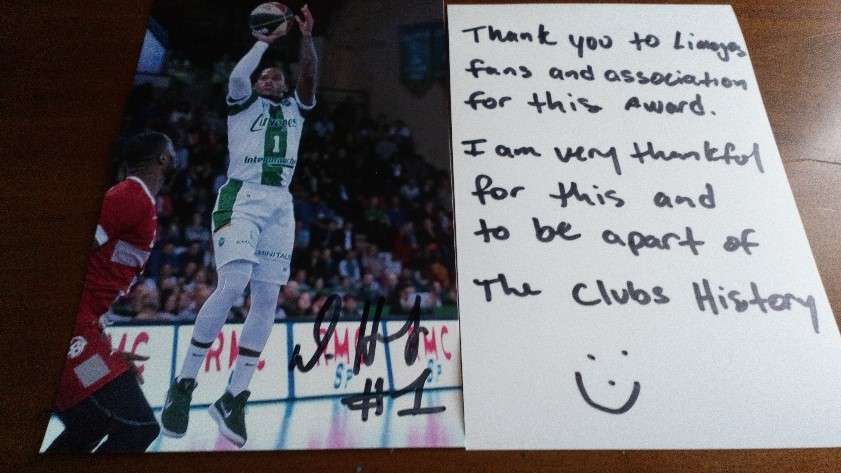 Limoges
1
EMINITALIE
RMC
RMC
SP
#1
Thank you to Limoges
fans and association
for this Award.
I am very thankful
for this and
to be apart of
The Clubs History